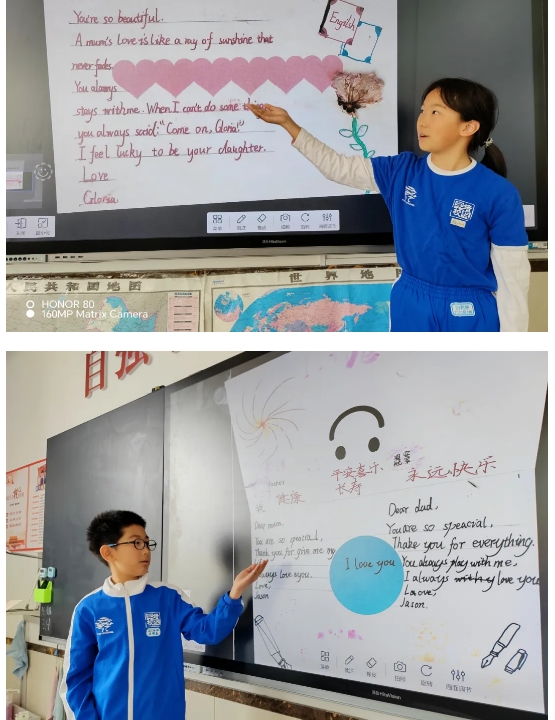 You're so beautiful.
A mum's Love is like a ray of sunshine that
never fades.
You always
stays with me. When I can't do some things
you always said: "Come on, Gloria!"
I feel lucky to be your daughter.
Love
Gloria
English
人民共和国地图
世界地
HONOR 80
160MP Matrix Camera
自强
平安喜乐
长寿
健康
永远快乐
Dear mum,
You are so speacial,
Thank you for give me my
always love you.
Love,
Jason
I love you
Dear dad,
You are so speacial,
Thake you for everything.
You always play with me.
I always love you
Loove,
Jason.